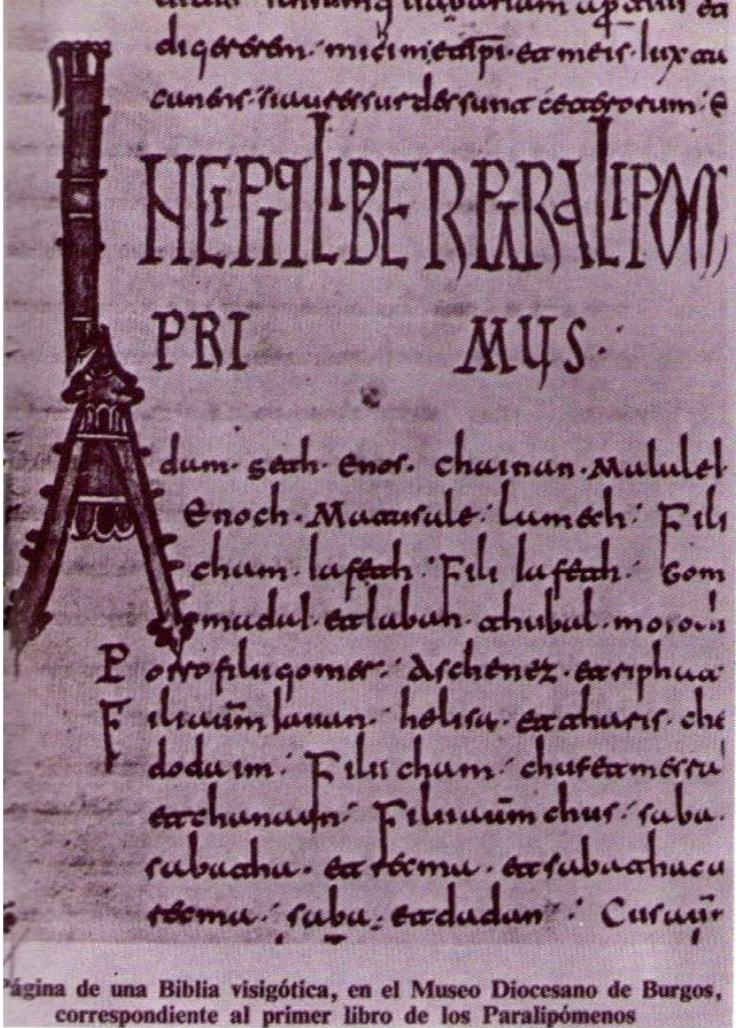 digererem· mici
INCIPIT LIBER PARALIPOM
PRI MUS·
Adam· seth· enos· chainan· Malalel
Enoch· Matusale· lamech· Fili
cham· Iafeth· Fili Iafeth· Gom
madai· et iaban· thubal· mosoch
Porro filii gomer· Aschenez· et riphat
Filii autem Iauan· helisa· et tharsis· che
dodaim· Filii cham· chus et mesra
et chanaan· Filii autem chus· saba·
sabatha· et recma· et sabathaca
recma· saba· et dadan·
Página de una Biblia visigótica, en el Museo Diocesano de Burgos,
correspondiente al primer libro de los Paralipómenos